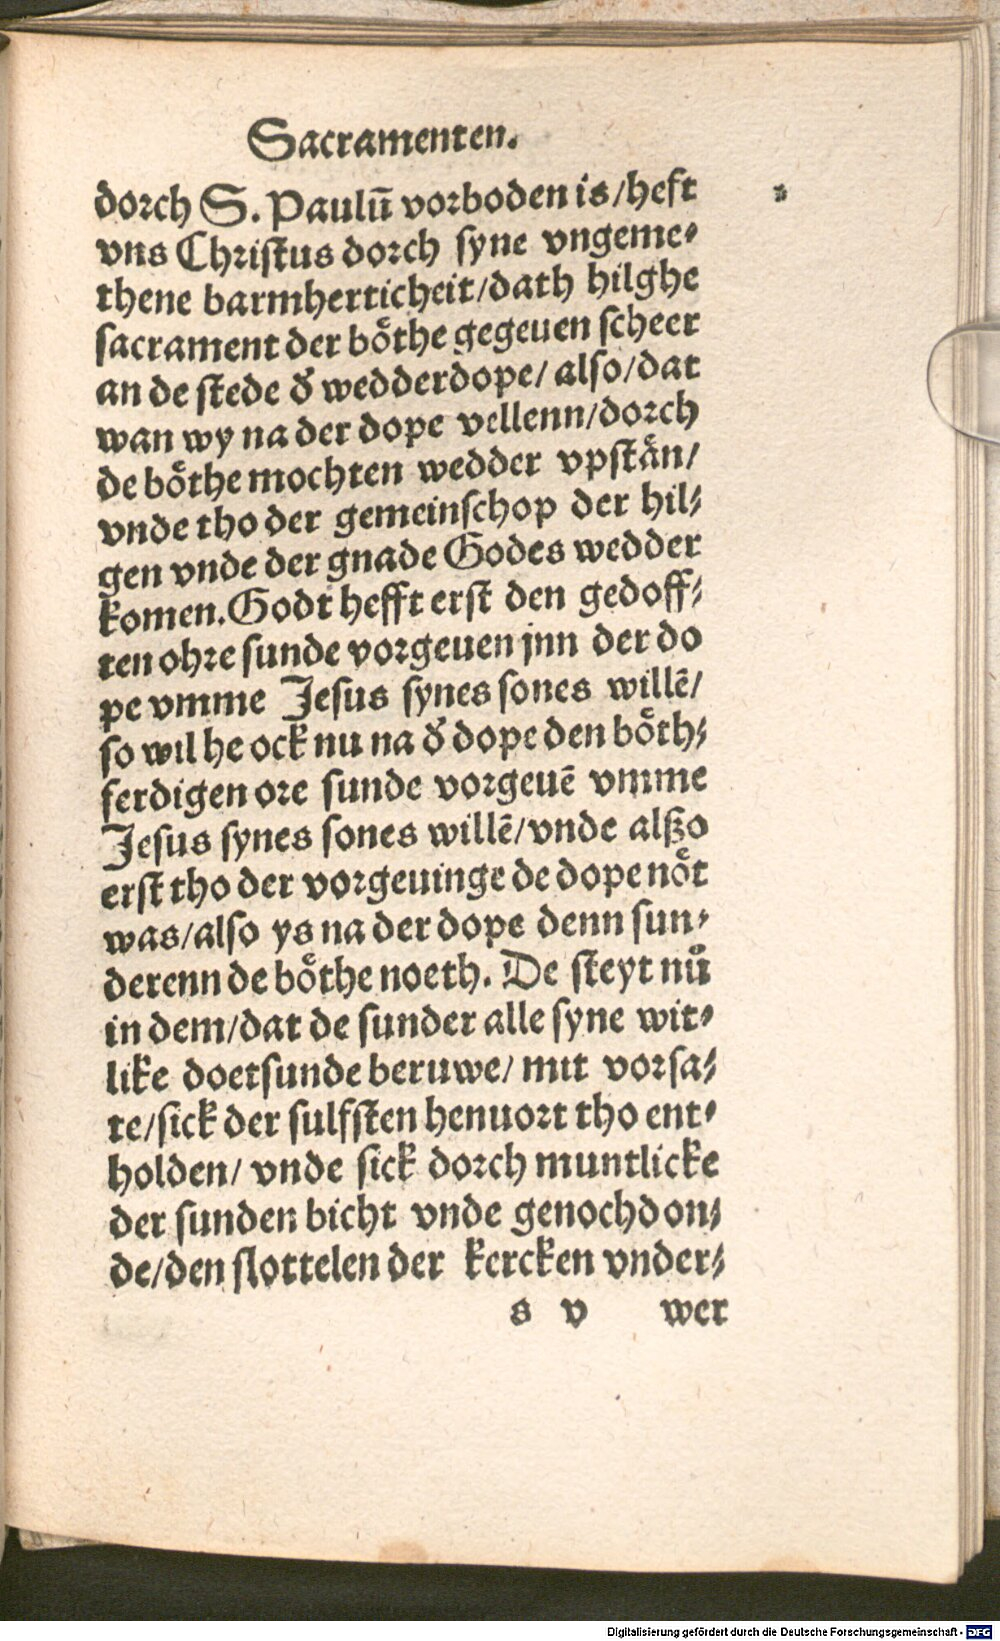 Sacramenten.
dorch S. Paulū vorboden is/heft
vns Christus dorch syne vngeme⸗
thene barmherticheit/dath hilghe
sacrament der bo̊the gegeuen scheer
an de stede d̕ wedderdope/ also/dat
wan wy na der dope vellenn/dorch
de bo̊the mochten wedder vpstån/
vnde tho der gemeinschop der hil⸗
gen vnde der gnade Godes wedder
komen. Godt hefft erst den gedoff⸗
ten ohre sunde vorgeuen jnn der do
pe vmme Jesus synes sones willē/
so wil he ock nu na d̕ dope den bo̊th⸗
ferdigen ore sunde vorgeuē vmme
Jesus synes sones willē/vnde alßo
erst tho der vorgeuinge de dope no̊t
was/also ys na der dope denn sun⸗
derenn de bo̊the noeth. De steyt nů
in dem/dat de sunder alle syne wit⸗
like doetsunde beruwe/ mit vorsa⸗
te/sick der sulfsten henuort tho ent⸗
holden/ vnde sick dorch muntlicke
der sunden bicht vnde genochdon⸗
de/den slottelen der kercken vnder⸗
s v wer
Digitalisierung gefördert durch die Deutsche Forschungsgemeinschaft - DFG